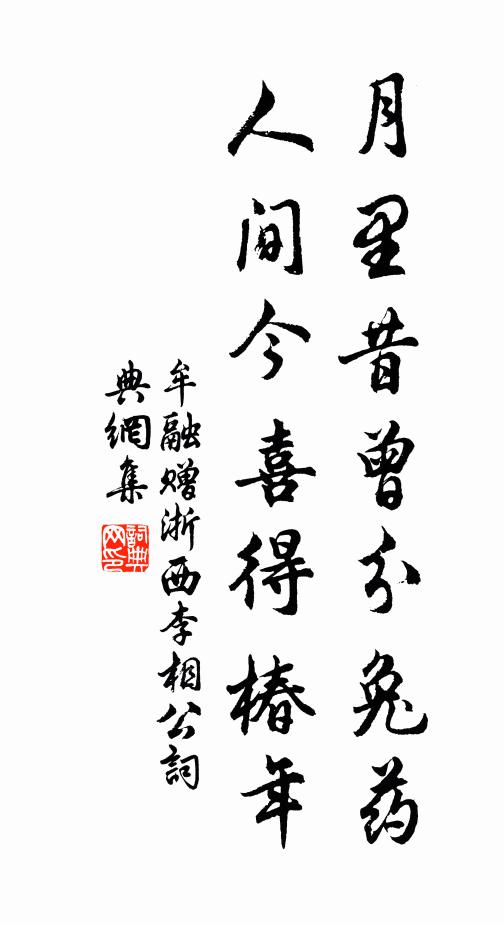 月里昔曾分兔药
人间今喜得椿年
牟融赠浙西李相公詞
典網集
詞典网印